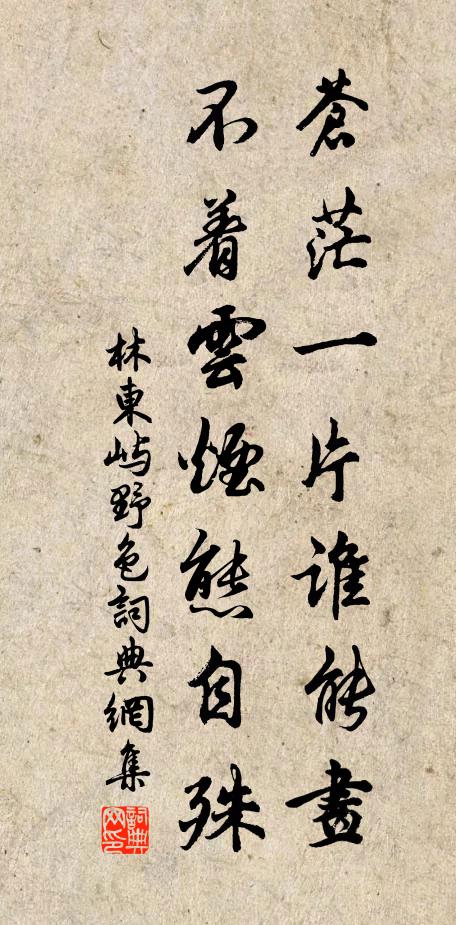 蒼茫一片誰能畫
不着雲煙態自殊
林東屿野色詞典網集
詞典网印